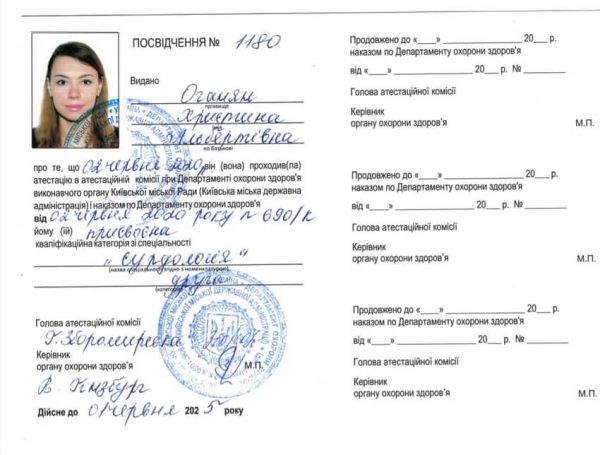 ПОСВІДЧЕННЯ № 1180
Видано
Оганян
прізвище
Христина
ім'я
Альбертівна
по батькові
про те, що 02 червня 2020 він (вона) проходив(ла)
атестацію в атестаційній комісії при Департаменті охорони здоров'я
виконавчого органу Київської міської Ради (Київська міська державна
адміністрація) і наказом по Департаменту охорони здоров'я
від 02 червня 2020 року № 690/к
йому (їй) присвоєна
кваліфікаційна категорія зі спеціальності
„сурдологія"
(назва спеціальності згідно з номенклатурою)
друга
(категорія)
Голова атестаційної комісії
Керівник
органу охорони здоров'я
М.П.
В. Гінзбург
Дійсне до 01 червня 2025 року
Продовжено до «____» __________ 20___ р.
наказом по Департаменту охорони здоров'я
від «____» __________ 20___ р. № ______
Голова атестаційної комісії
Керівник
органу охорони здоров'я М.П.
Продовжено до «____» __________ 20___ р.
наказом по Департаменту охорони здоров'я
від «____» __________ 20___ р. № ______
Голова атестаційної комісії
Керівник
органу охорони здоров'я М.П.
Продовжено до «____» __________ 20___ р.
наказом по Департаменту охорони здоров'я
від «____» __________ 20___ р. № ______
Голова атестаційної комісії
Керівник
органу охорони здоров'я М.П.